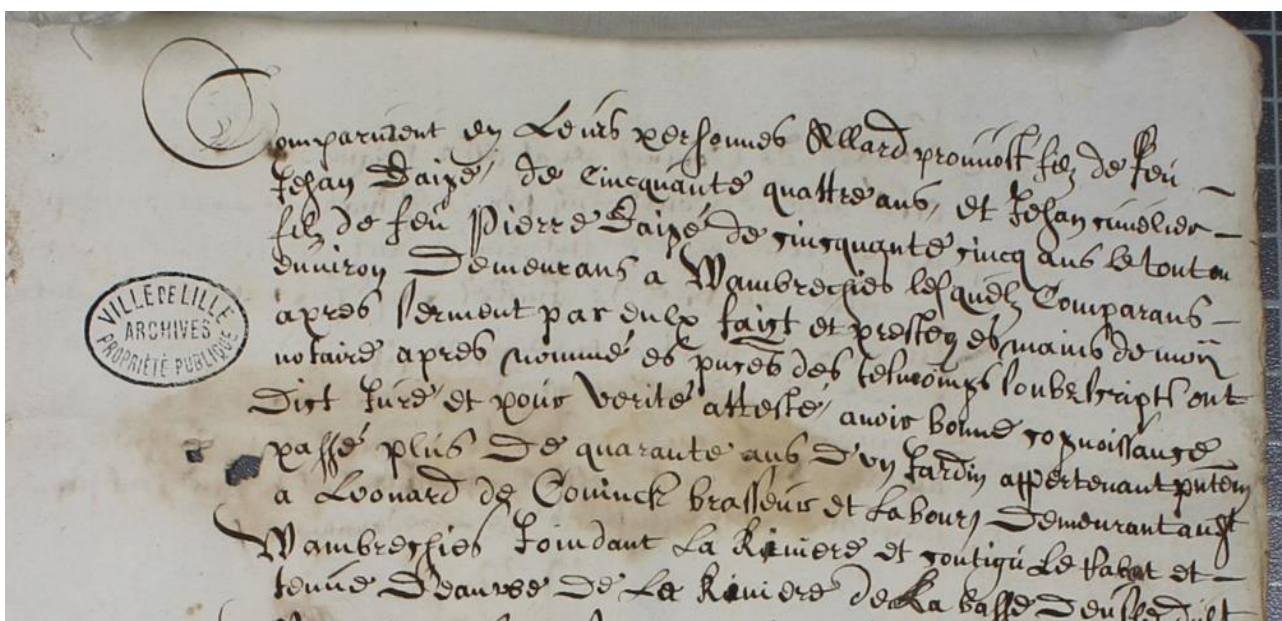 Comparurent en Leurs personnes Allard prouuost filz de feu
Jehan Eaigé de Cincquante quattre ans, et Jehan cuuelier
filz de feu Pierre Eaigé de cincquante cincq ans Le tout ou
enuiron Demeurans a Wambrechies lesquelz Comparans
apres serment par eulx faict et prestez es mains de moy
notaire apres nommé es pnces des tesmoings soubzscriptz ont
Dict Juré et pour verité atteste, auoir bonne cognoissance
passé plus de quarante ans d'un Jardin appertenant pntem
VILLE DE LILLE
ARCHIVES
PROPRIÉTÉ PUBLIQUE
a Leonard de Coninck brasseur et Labour Demeurant audt
Wambrechies Joindant La Riuiere et contigu Le et
tenue de La Riuiere de La basse Deusle